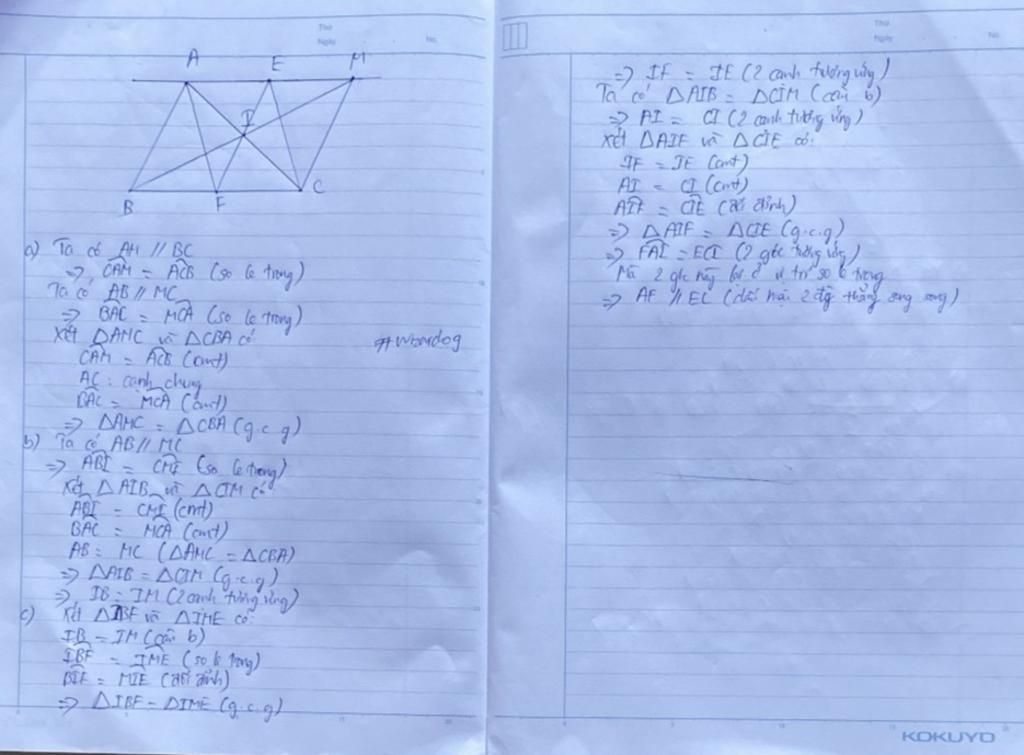 Thứ
Ngày
No.
A E M
I
B F C
a) Ta có AM // BC
=> CAM = ACB (so le trong)
Ta có AB // MC
=> BAC = MCA (so le trong)
Xét ΔAMC và ΔCBA có
CAM = ACB (cmt)
AC: cạnh chung
BAC = MCA (cmt)
=> ΔAMC = ΔCBA (g.c.g)
b) Ta có AB // MC
=> ABI = CMI (so le trong)
Xét ΔAIB và ΔCIM có
ABI = CMI (cmt)
BAC = MCA (cmt)
AB = MC (ΔAMC = ΔCBA)
=> ΔAIB = ΔCIM (g.c.g)
=> IB = IM (2 cạnh tương ứng)
c) Xét ΔIBF và ΔIME có:
IB = IM (câu b)
IBF = IME (so le trong)
BIF = MIE (đối đỉnh)
=> ΔIBF = ΔIME (g.c.g)
Thứ
Ngày
No.
=> IF = IE (2 cạnh tương ứng)
Ta có ΔAIB = ΔCIM (câu b)
=> AI = CI (2 cạnh tương ứng)
Xét ΔAIF và ΔCIE có:
IF = IE (cmt)
AI = CI (cmt)
AIF = CIE (đối đỉnh)
=> ΔAIF = ΔCIE (g.c.g)
=> FAI = ECI (2 góc tương ứng)
Mà 2 góc này lại ở vị trí so le trong
=> AF // EC (dấu hiệu 2 đg thẳng song song)
KOKUYO